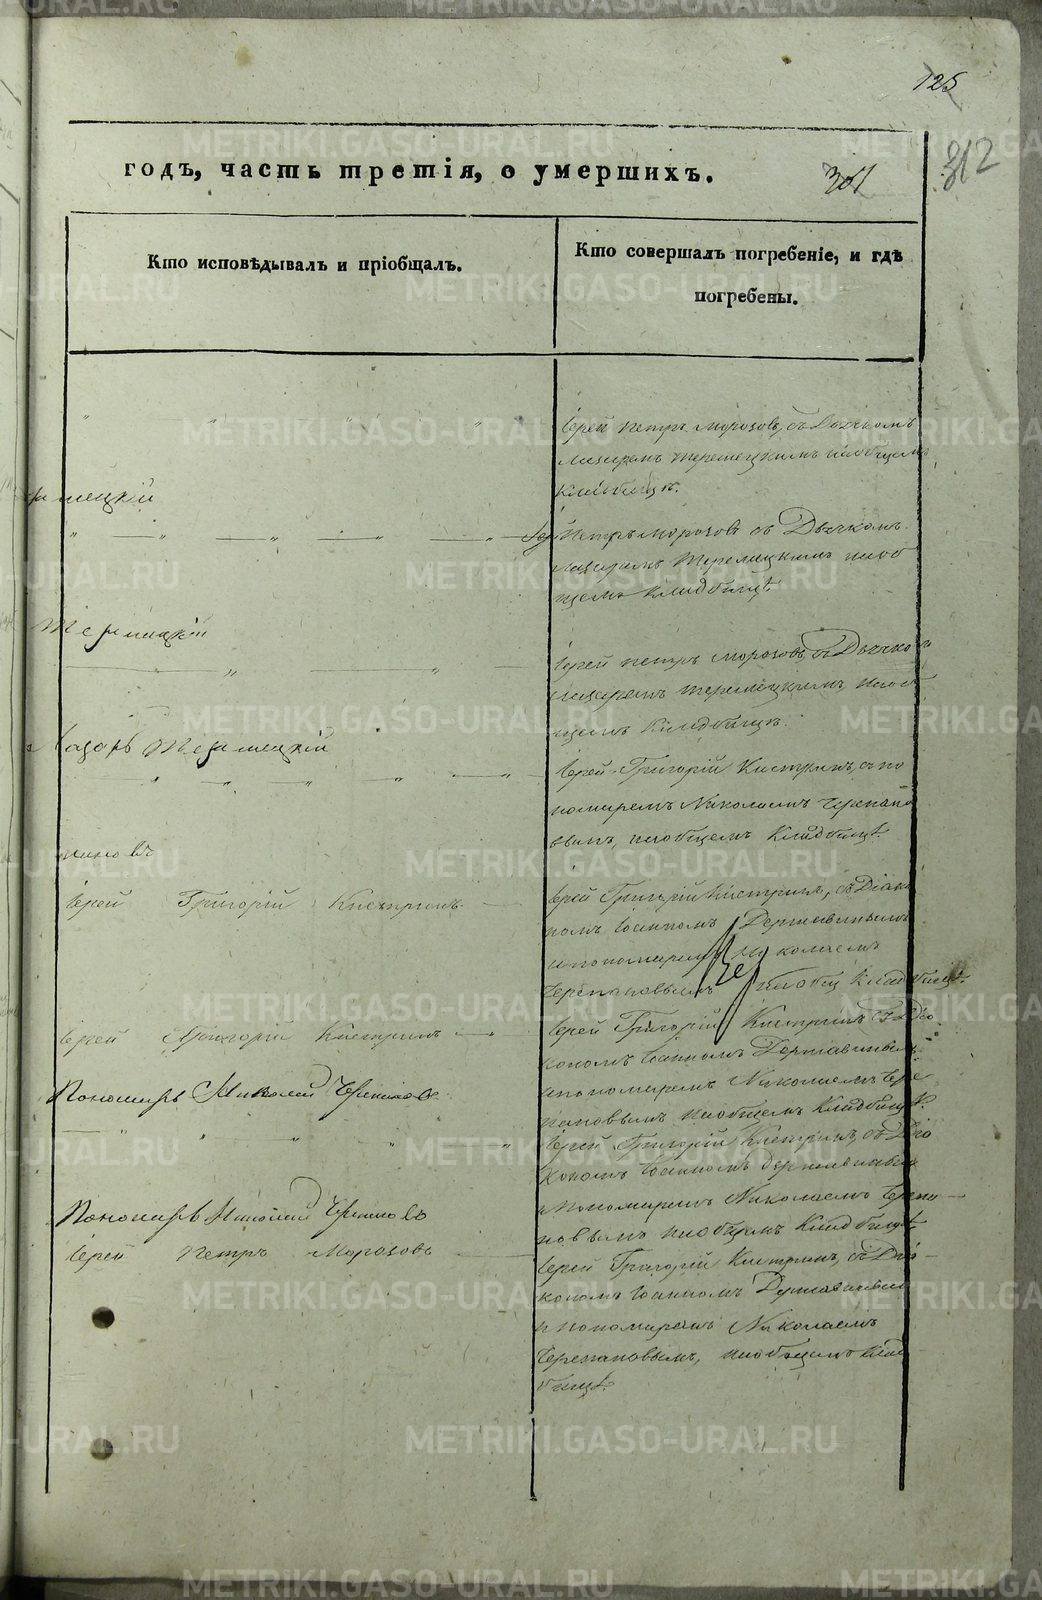 125
годъ, часть третія, о умершихъ.
301
312
Кто исповѣдывалъ и пріобщалъ.
Кто совершалъ погребеніе, и гдѣ
погребены.
Іерей Петръ Морозовъ, съ Дьячкомъ
Лазаремъ Теремецкимъ на общемъ
Кладбищѣ.
Петръ Морозовъ съ Дьячкомъ
Лазаремъ Теремецкимъ на об
щемъ Кладбищѣ
Теремецкій
Іерей Петръ Морозовъ, съ Дьячко
Лазаремъ Теремецкимъ на об
щемъ Кладбищѣ.
Лазарь Теремецкій
Іерей Григорій Кистринъ, съ по
номаремъ Николаемъ Черепано
вымъ, на общемъ Кладбищѣ.
Іерей Григорій Кастринъ
Іерей Григорій Кастринъ, съ Діако
номъ Іоанномъ Державинымъ
и пономаремъ Николаемъ
Черепановымъ на общ Кладбищѣ.
Іерей Григорій Кастринъ
Іерей Григорій Кастринъ съ Діа
кономъ Іоанномъ Державинымъ
и пономаремъ Николаемъ Чере
пановымъ на общемъ Кладбищѣ.
Пономарь Николай Черепановъ
Іерей Григорій Кастринъ, съ Діа
кономъ Іоанномъ Державинымъ
и Пономаремъ Николаемъ Черепа
новымъ на общемъ Кладбищѣ
Пономарь Николай Черепановъ
Іерей Петръ Морозовъ
Іерей Григорій Кастринъ, съ Діа
кономъ Іоанномъ Державинымъ
и пономаремъ Николаемъ
Черепановымъ, на общемъ Клад
бищѣ.
METRIKI.GASO-URAL.RU